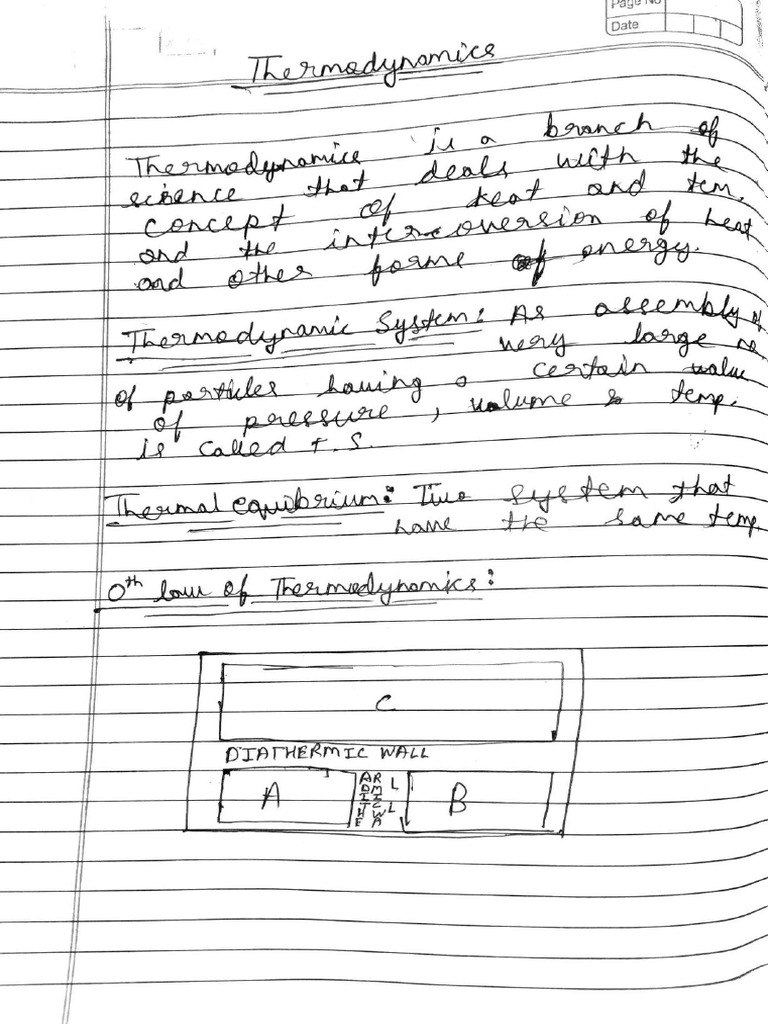 Page No
Date
Thermodynamics
Thermodynamics is a branch of
science that deals with the
concept of heat and tem.
and the interconversion of heat
and other forms of energy.
Thermodynamic System: As assembly of
very large no
of particles having a certain value
of pressure, volume & temp.
is called T.S.
Thermal equibrium: Two system that
have the same temp.
0th law of Thermodynamics:
C
DIATHERMIC WALL
A
ADITHE
RMICWA
LL
B